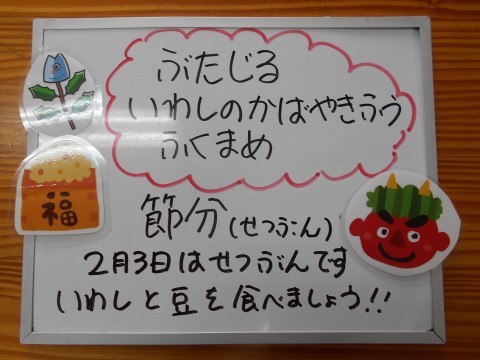 ぶたじる
いわしのかばやきふう
ふくまめ
福
節分(せつぶん)
2月3日はせつぶんです
いわしと豆を食べましょう!!